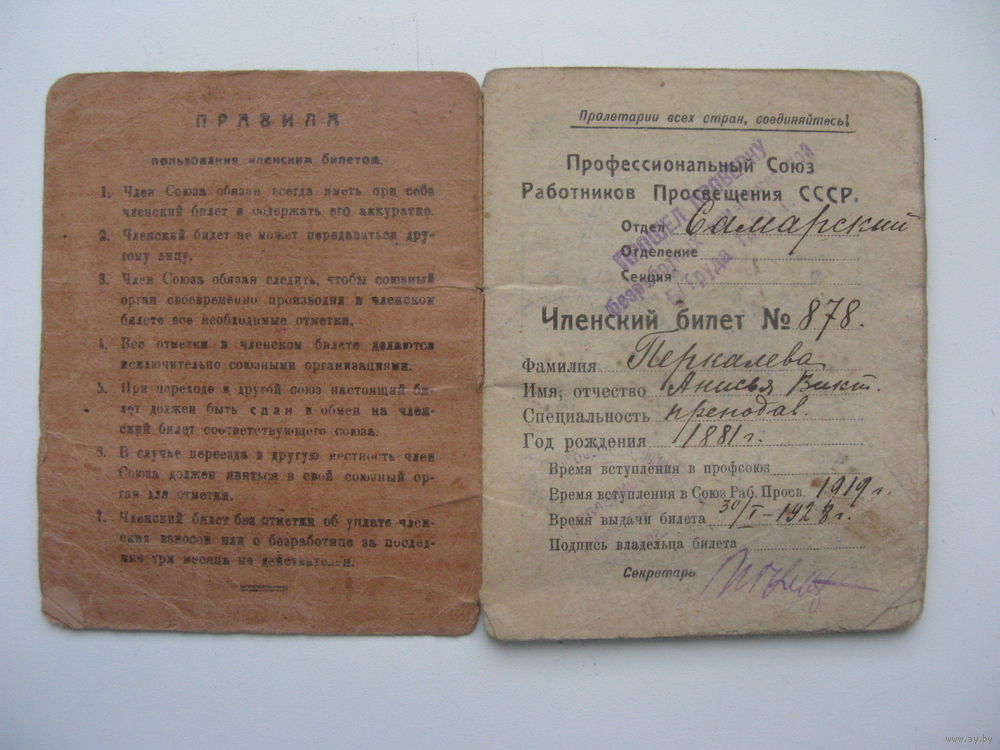 ПРАВИЛА
пользования членским билетом.
1. Член Союза обязан всегда иметь при себе
членский билет и содержать его аккуратно.
2. Членский билет не может передаваться дру-
гому лицу.
3. Член Союза обязан следить, чтобы союзный
орган своевременно производил в членском
билете все необходимые отметки.
4. Все отметки в членском билете делаются
исключительно союзными организациями.
5. При переходе в другой союз настоящий би-
лет должен быть сдан в обмен на член-
ский билет соответствующего союза.
6. В случае переезда в другую местность член
Союза должен явиться в свой союзный ор-
ган для отметки.
7. Членский билет без отметки об уплате член-
ских взносов или о безработице за послед-
ние три месяца не действителен.
Пролетарии всех стран, соединяйтесь!
Профессиональный Союз
Работников Просвещения СССР.
Отдел Самарский
Отделение
Секция
ПРОШЕЛ ПРОВЕРКУ
безработных
Труда
Членский билет № 878.
Фамилия Перкалева
Имя, отчество Анисья Викт.
Специальность преподав.
Год рождения 1881 г.
Время вступления в профсоюз
Время вступления в Союз Раб. Просв. 1919 г.
Время выдачи билета 30/I-1928 г.
Подпись владельца билета
Секретарь
www.ay.by